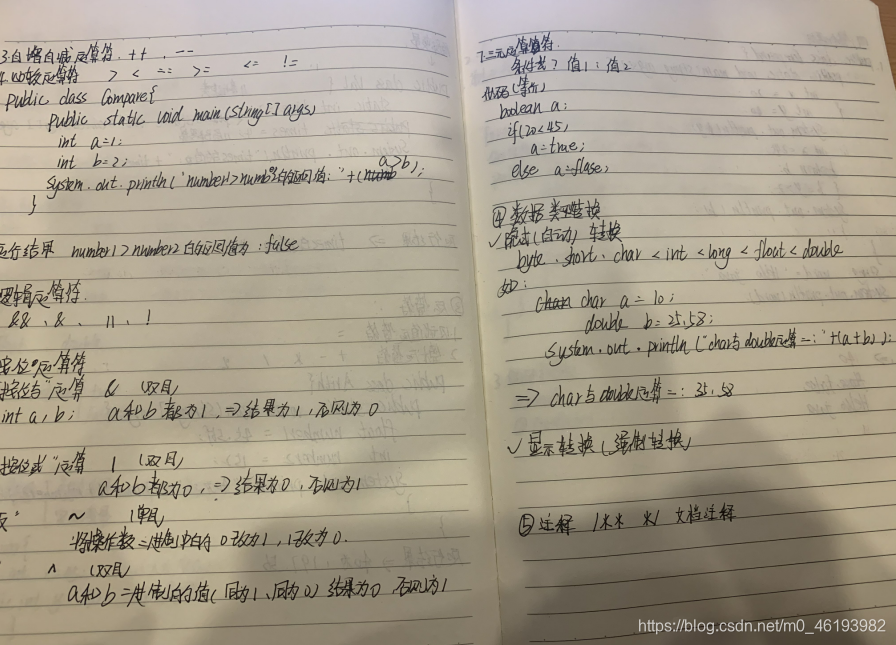 3.自增自减运算符. ++ . --
4.比较运算符 > < == >= <= !=
public class Compare{
public static void main(String[] args)
int a=1;
int b=2;
a>b
system.out.println("number1>number2的返回值:"+( );
}
运行结果 number1>number2的返回值为:false
逻辑运算符.
&& 、& 、 || 、!
按位运算符
按位与"运算 & 双目
int a,b; a和b都为1,=>结果为1,否则为0
按位或"运算 | 双目
a和b都为0,=>结果为0,否则为1
反" ~ 单目
将操作数二进制中的 0改为1,1改为0.
^ 双目
a和b二进制的值(同为1、同为0)结果为0 否则为1
7.三元运算符.
条件式?值1:值2
(等价)
boolean a;
if(20<45)
a=true;
else a=flase;
④数据类型转换
✓隐式(自动)转换
byte、short、char<int<long<flout<double
如:
char a=10;
double b=25.58;
system.out.println("char与double运算=:"+(a+b));
=> char与double运算=:35.58
✓显示转换(强制转换)
⑤注释 /** */ 文档注释
https://blog.csdn.net/m0_46193982